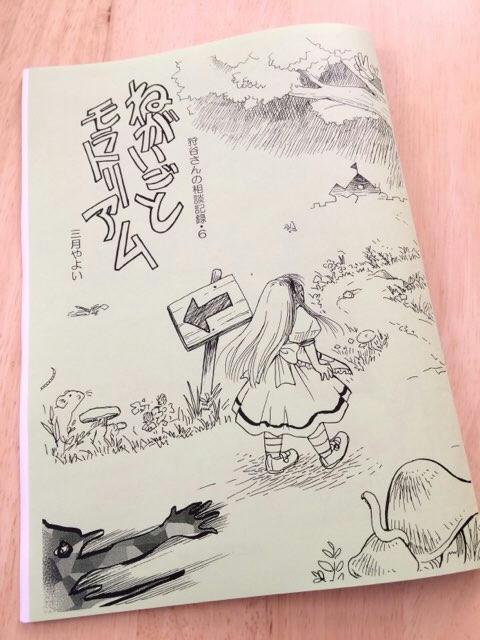 狩谷さんの相談記録・6
ねがいごと
モラトリアム
三月やよい